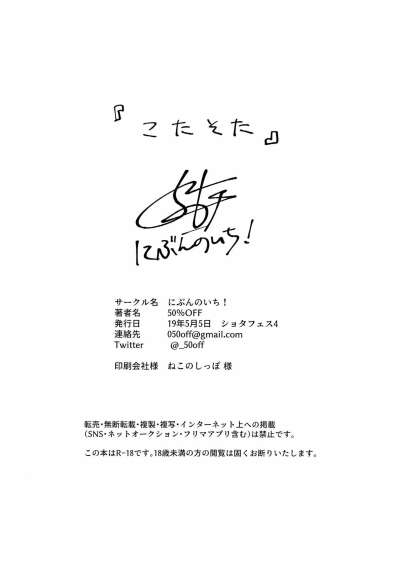 『こたそた』
にぶんのいち!
サークル名 にぶんのいち!
著者名 50%OFF
発行日 19年5月5日 ショタフェス4
連絡先 050off@gmail.com
Twitter @_50off
印刷会社様 ねこのしっぽ 様
転売・無断転載・複製・複写・インターネット上への掲載
(SNS・ネットオークション・フリマアプリ含む)は禁止です。
この本はR-18です。18歳未満の方の閲覧は固くお断りいたします。